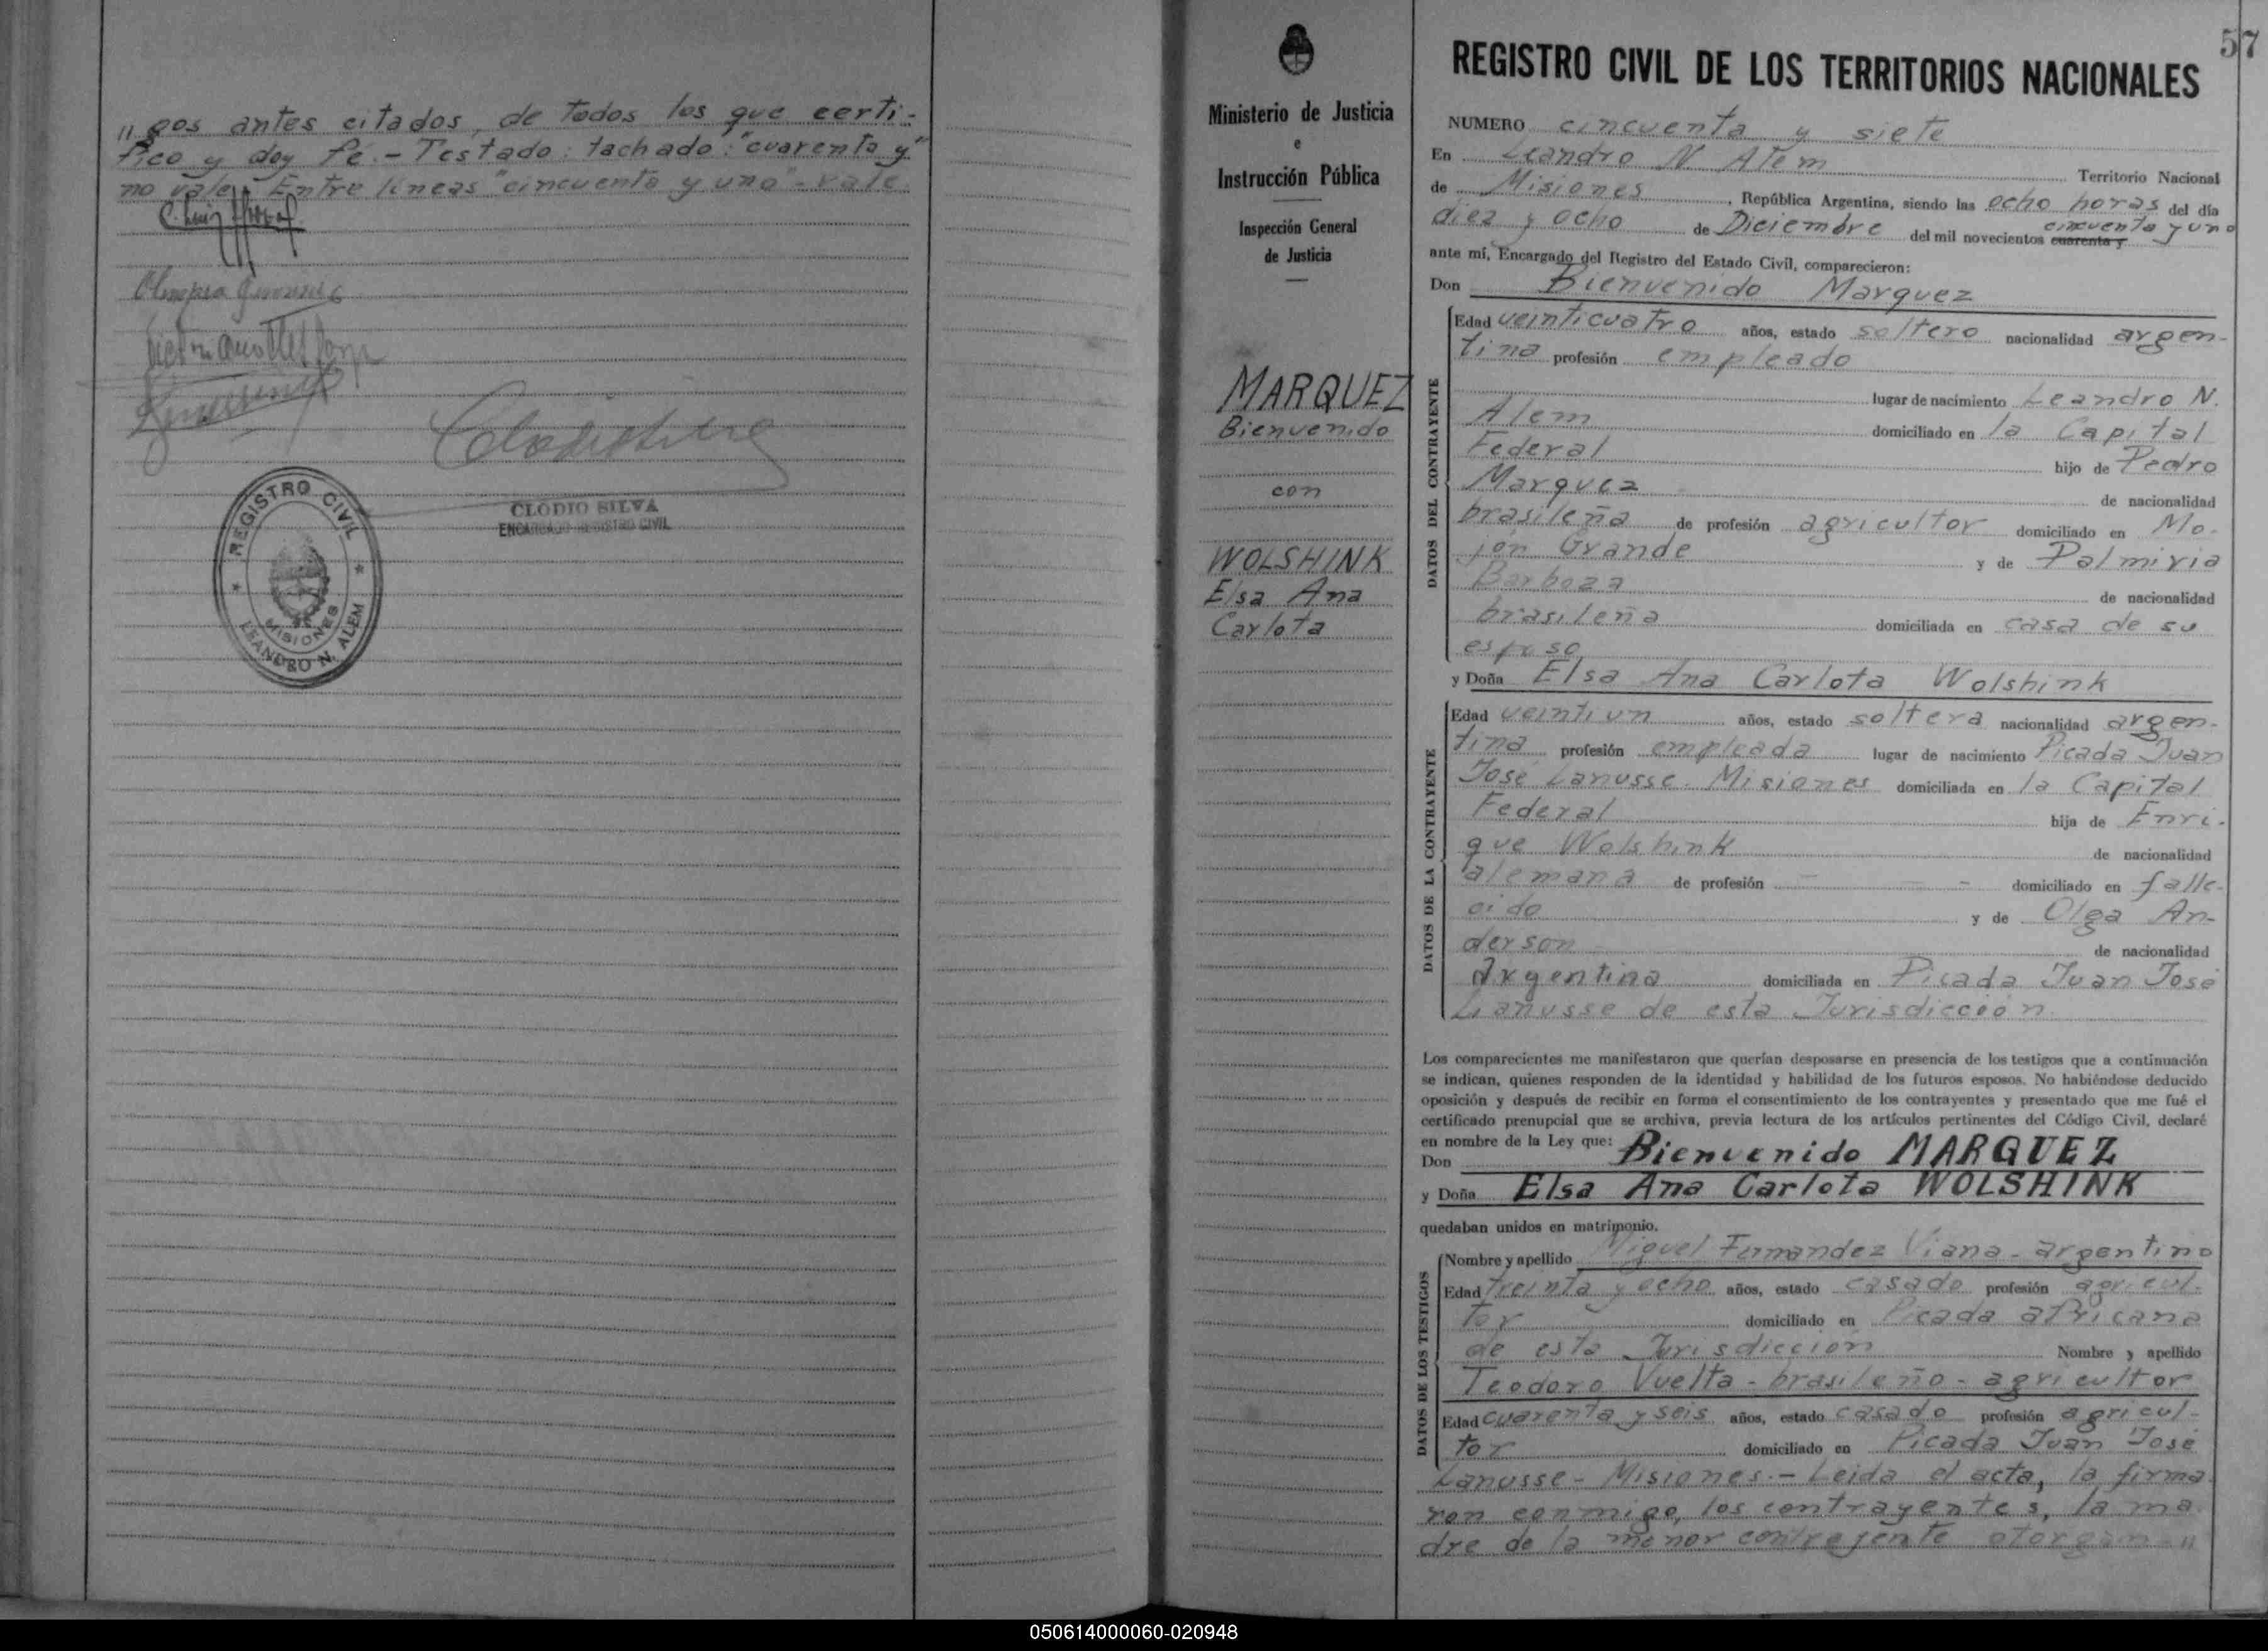 "gos antes citados, de todos los que certi-
fico y doy fé.- Testado: tachado: "cuarenta y"
no vale. Entre líneas "cincuenta y uno" - vale.
CLODIO SILVA
ENCARGADO REGISTRO CIVIL
REGISTRO CIVIL
MISIONES
LEANDRO N. ALEM
Ministerio de Justicia
e
Instrucción Pública
Inspección General
de Justicia
MARQUEZ
Bienvenido
con
WOLSHINK
Elsa Ana
Carlota
57
REGISTRO CIVIL DE LOS TERRITORIOS NACIONALES
NUMERO cincuenta y siete
En Leandro N. Alem Territorio Nacional
de Misiones, República Argentina, siendo las ocho horas del día
diez y ocho de Diciembre del mil novecientos cuarenta y cincuenta y uno
ante mí, Encargado del Registro del Estado Civil, comparecieron:
Don Bienvenido Marquez
DATOS DEL CONTRAYENTE
Edad veinticuatro años, estado soltero nacionalidad argen-
tina profesión empleado
lugar de nacimiento Leandro N.
Alem domiciliado en la Capital
Federal hijo de Pedro
Marquez de nacionalidad
brasileña de profesión agricultor domiciliado en Mo-
jón Grande y de Palmiria
Barboza de nacionalidad
brasileña domiciliada en casa de su
esposo
y Doña Elsa Ana Carlota Wolshink
DATOS DE LA CONTRAYENTE
Edad veintiun años, estado soltera nacionalidad argen-
tina profesión empleada lugar de nacimiento Picada Juan
José Lanusse. Misiones domiciliada en la Capital
Federal hija de Enri-
que Wolshink de nacionalidad
alemana de profesión - - domiciliado en falle-
cido y de Olga An-
derson de nacionalidad
Argentina domiciliada en Picada Juan José
Lanusse de esta Jurisdicción.
Los comparecientes me manifestaron que querían desposarse en presencia de los testigos que a continuación
se indican, quienes responden de la identidad y habilidad de los futuros esposos. No habiéndose deducido
oposición y después de recibir en forma el consentimiento de los contrayentes y presentado que me fué el
certificado prenupcial que se archiva, previa lectura de los artículos pertinentes del Código Civil, declaré
en nombre de la Ley que:
Don Bienvenido MARQUEZ
y Doña Elsa Ana Carlota WOLSHINK
quedaban unidos en matrimonio.
DATOS DE LOS TESTIGOS
Nombre y apellido Miguel Fernandez Viana - argentino
Edad treinta y ocho años, estado casado profesión agricul-
tor domiciliado en Picada africana
de esta Jurisdicción Nombre y apellido
Teodoro Vuelta - brasileño - agricultor
Edad cuarenta y seis años, estado casado profesión agricul-
tor domiciliado en Picada Juan José
Lanusse - Misiones.- Leida el acta, la firma-
ron conmigo, los contrayentes, la ma-
dre de la menor contrayente otorgan- "
050614000060-020948